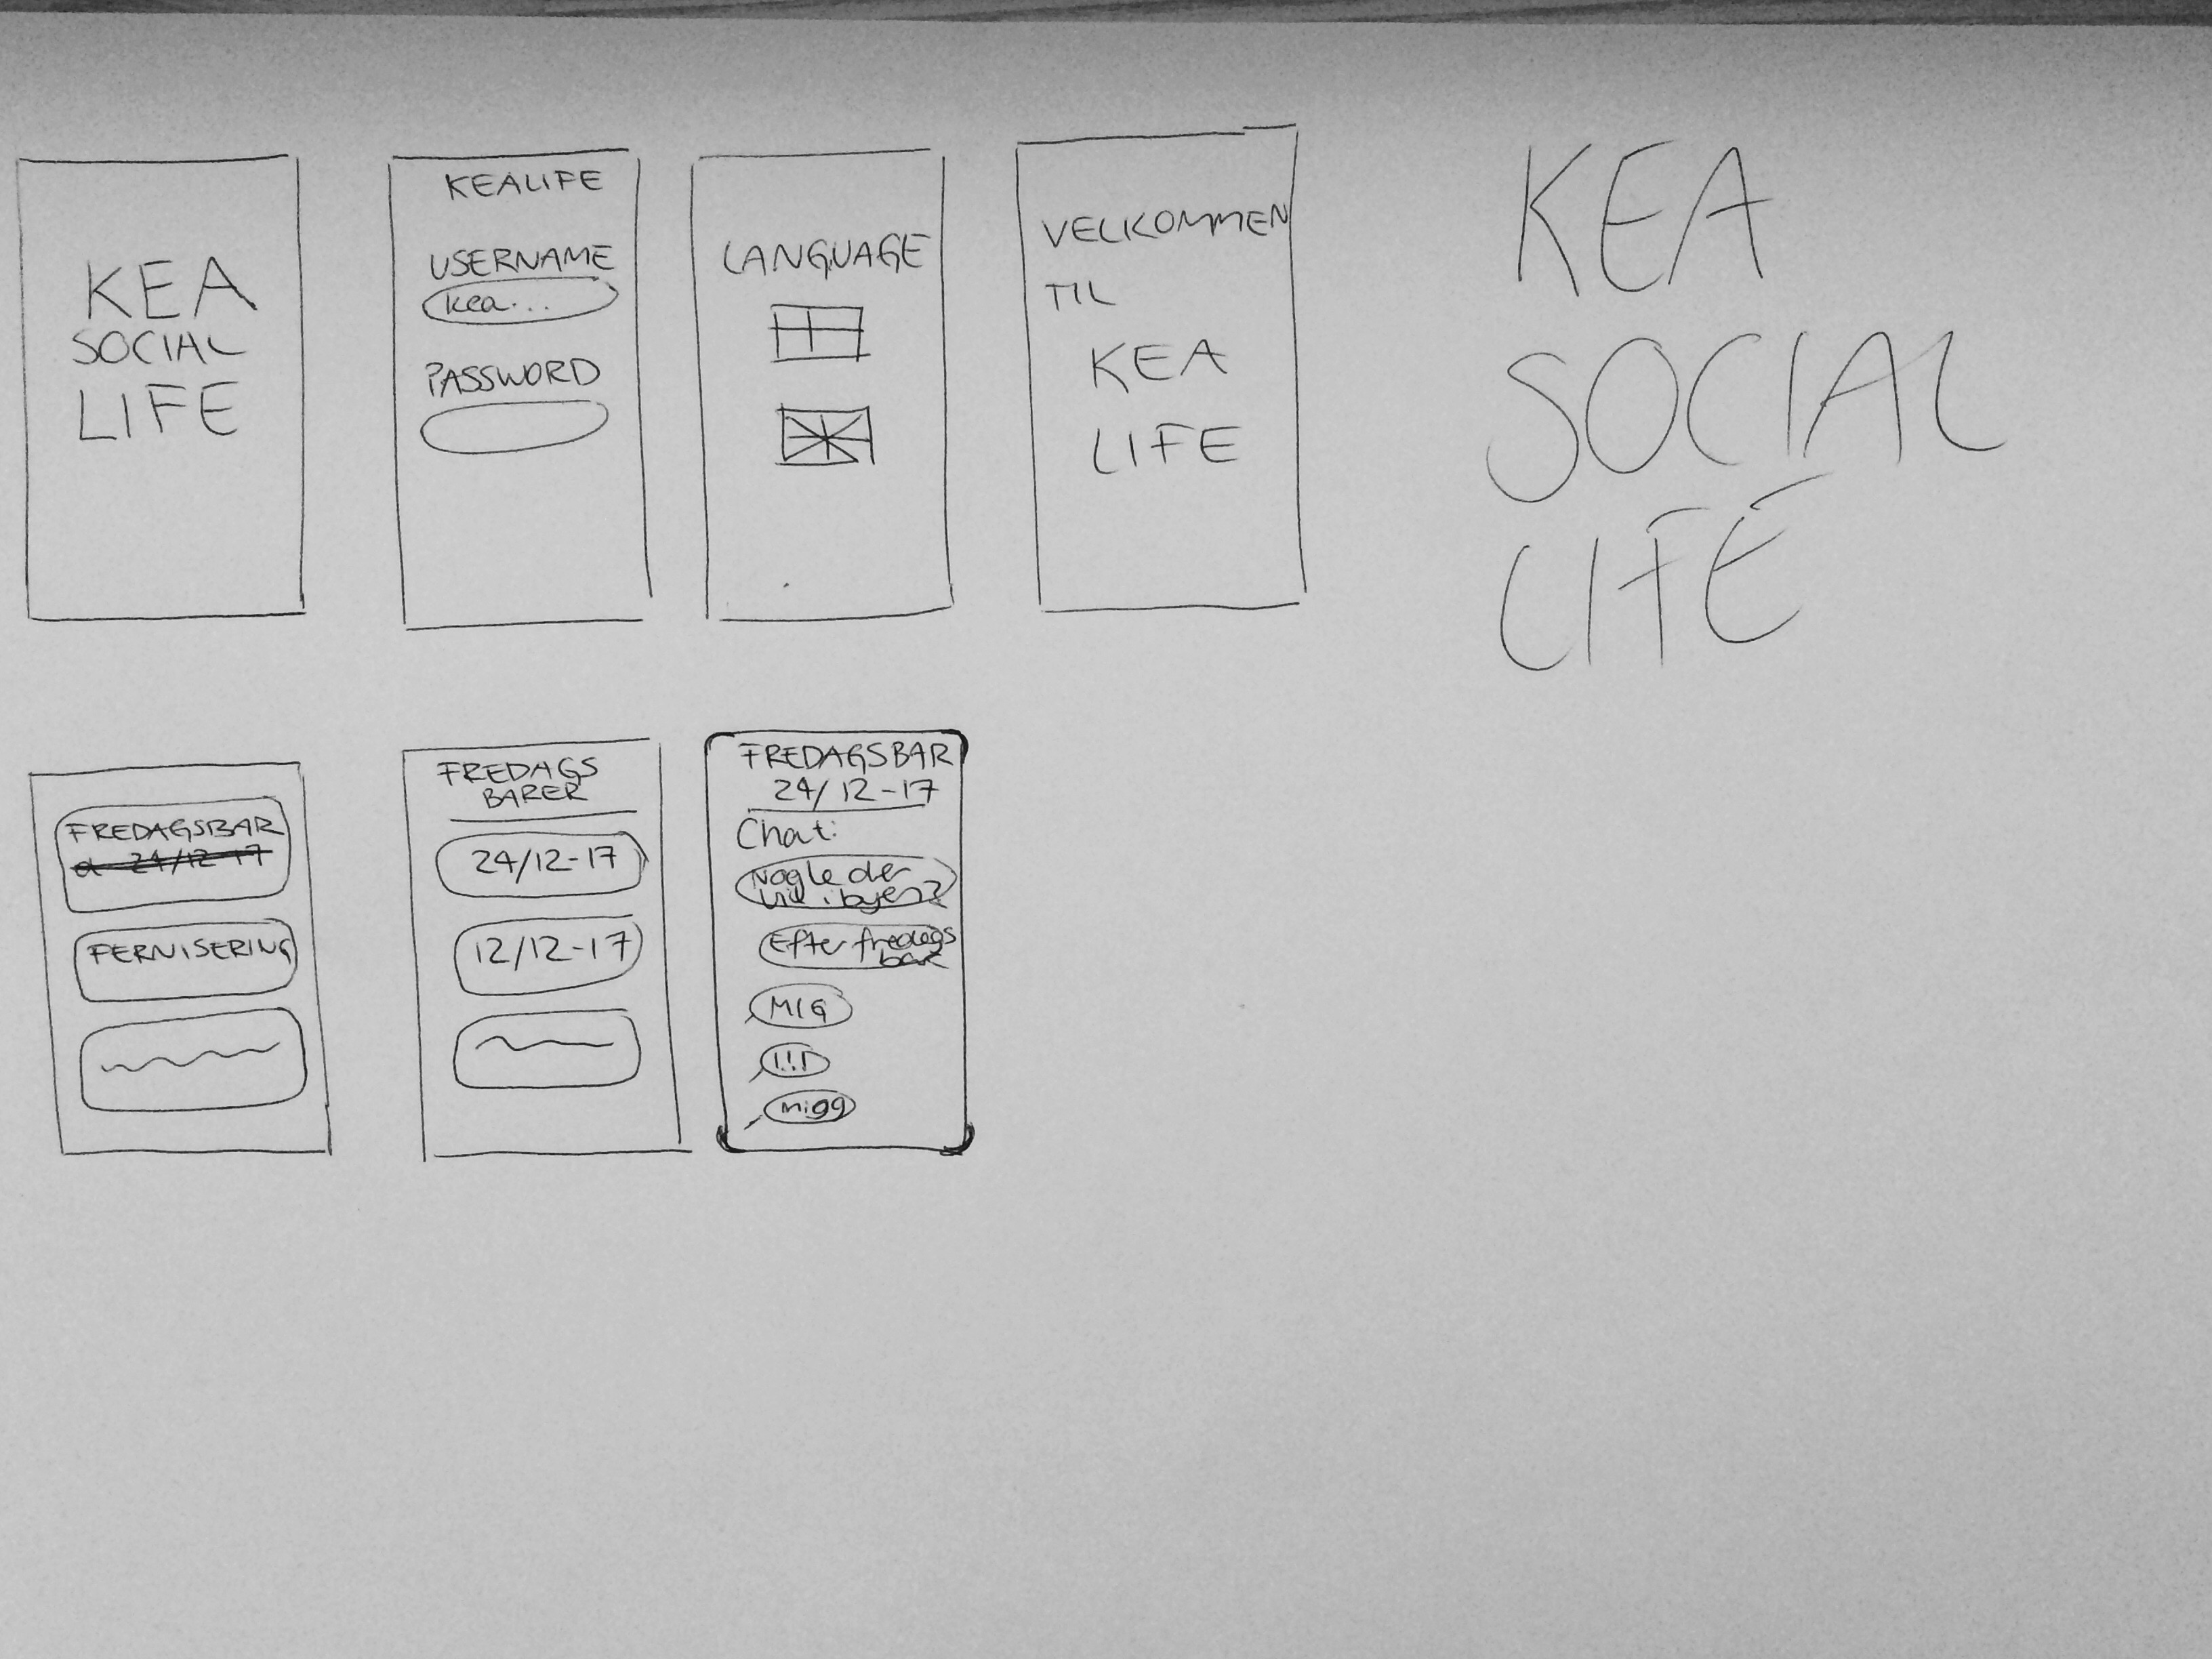 KEA
SOCIAL
LIFE
KEALIFE
USERNAME
kea...
PASSWORD
LANGUAGE
VELKOMMEN
TIL
KEA
LIFE
KEA
SOCIAL
LIFE
FREDAGSBAR
24/12-17
FERNISERING
FREDAGS
BARER
24/12-17
12/12-17
FREDAGSBAR
24/12-17
Chat:
Nogle der
vil i byen?
Efter fredags
bar
MIG
!!!
migg